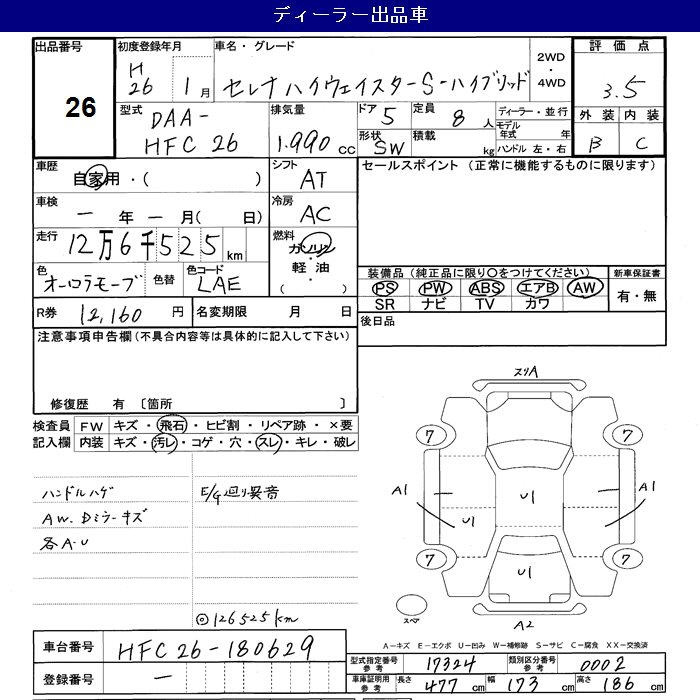 ディーラー出品車
出品番号 26
初度登録年月 H26 1月
車名・グレード セレナ ハイウェイスターS-ハイブリッド
2WD・4WD
評価点 3.5
外装 内装
B C
型式 DAA-HFC26
排気量 1.990 cc
ドア 5
定員 8 人
ディーラー・並行
形状 SW
積載 kg
モデル年式 年
ハンドル 左・右
車歴 自家用・( )
シフト AT
セールスポイント (正常に機能するものに限ります)
車検 一年一月( 日)
冷房 AC
走行 12万6千525km
燃料 ガソリン・軽油・( )
色 オーロラモーブ
色替
色コード LAE
装備品 (純正品に限り○をつけてください)
新車保証書
PS PW ABS エアB AW
SR ナビ TV カワ
有・無
R券 12,160 円
名変期限 月 日
後日品
注意事項申告欄(不具合内容等は具体的に記入して下さい)
修復歴 有 [箇所 ]
検査員記入欄
FW キズ・飛石・ヒビ割・リペア跡・×要
内装 キズ・汚レ・コゲ・穴・スレ・キレ・破レ
ハンドルハゲ
E/G廻り異音
AW.Dミラーキズ
各A-U
◎126525km
スリA
7 7
A1 U1 U1 A1
7 7
U1
スペア
A2
A-キズ E-エクボ U-凹み W-補修跡 S-サビ C-腐食 XX-交換済
車台番号 HFC26-180629
登録番号 一
型式指定番号 参考 17324
類別区分番号 参考 0002
車庫証明用 参考 長さ 477 cm 幅 173 cm 高さ 186 cm